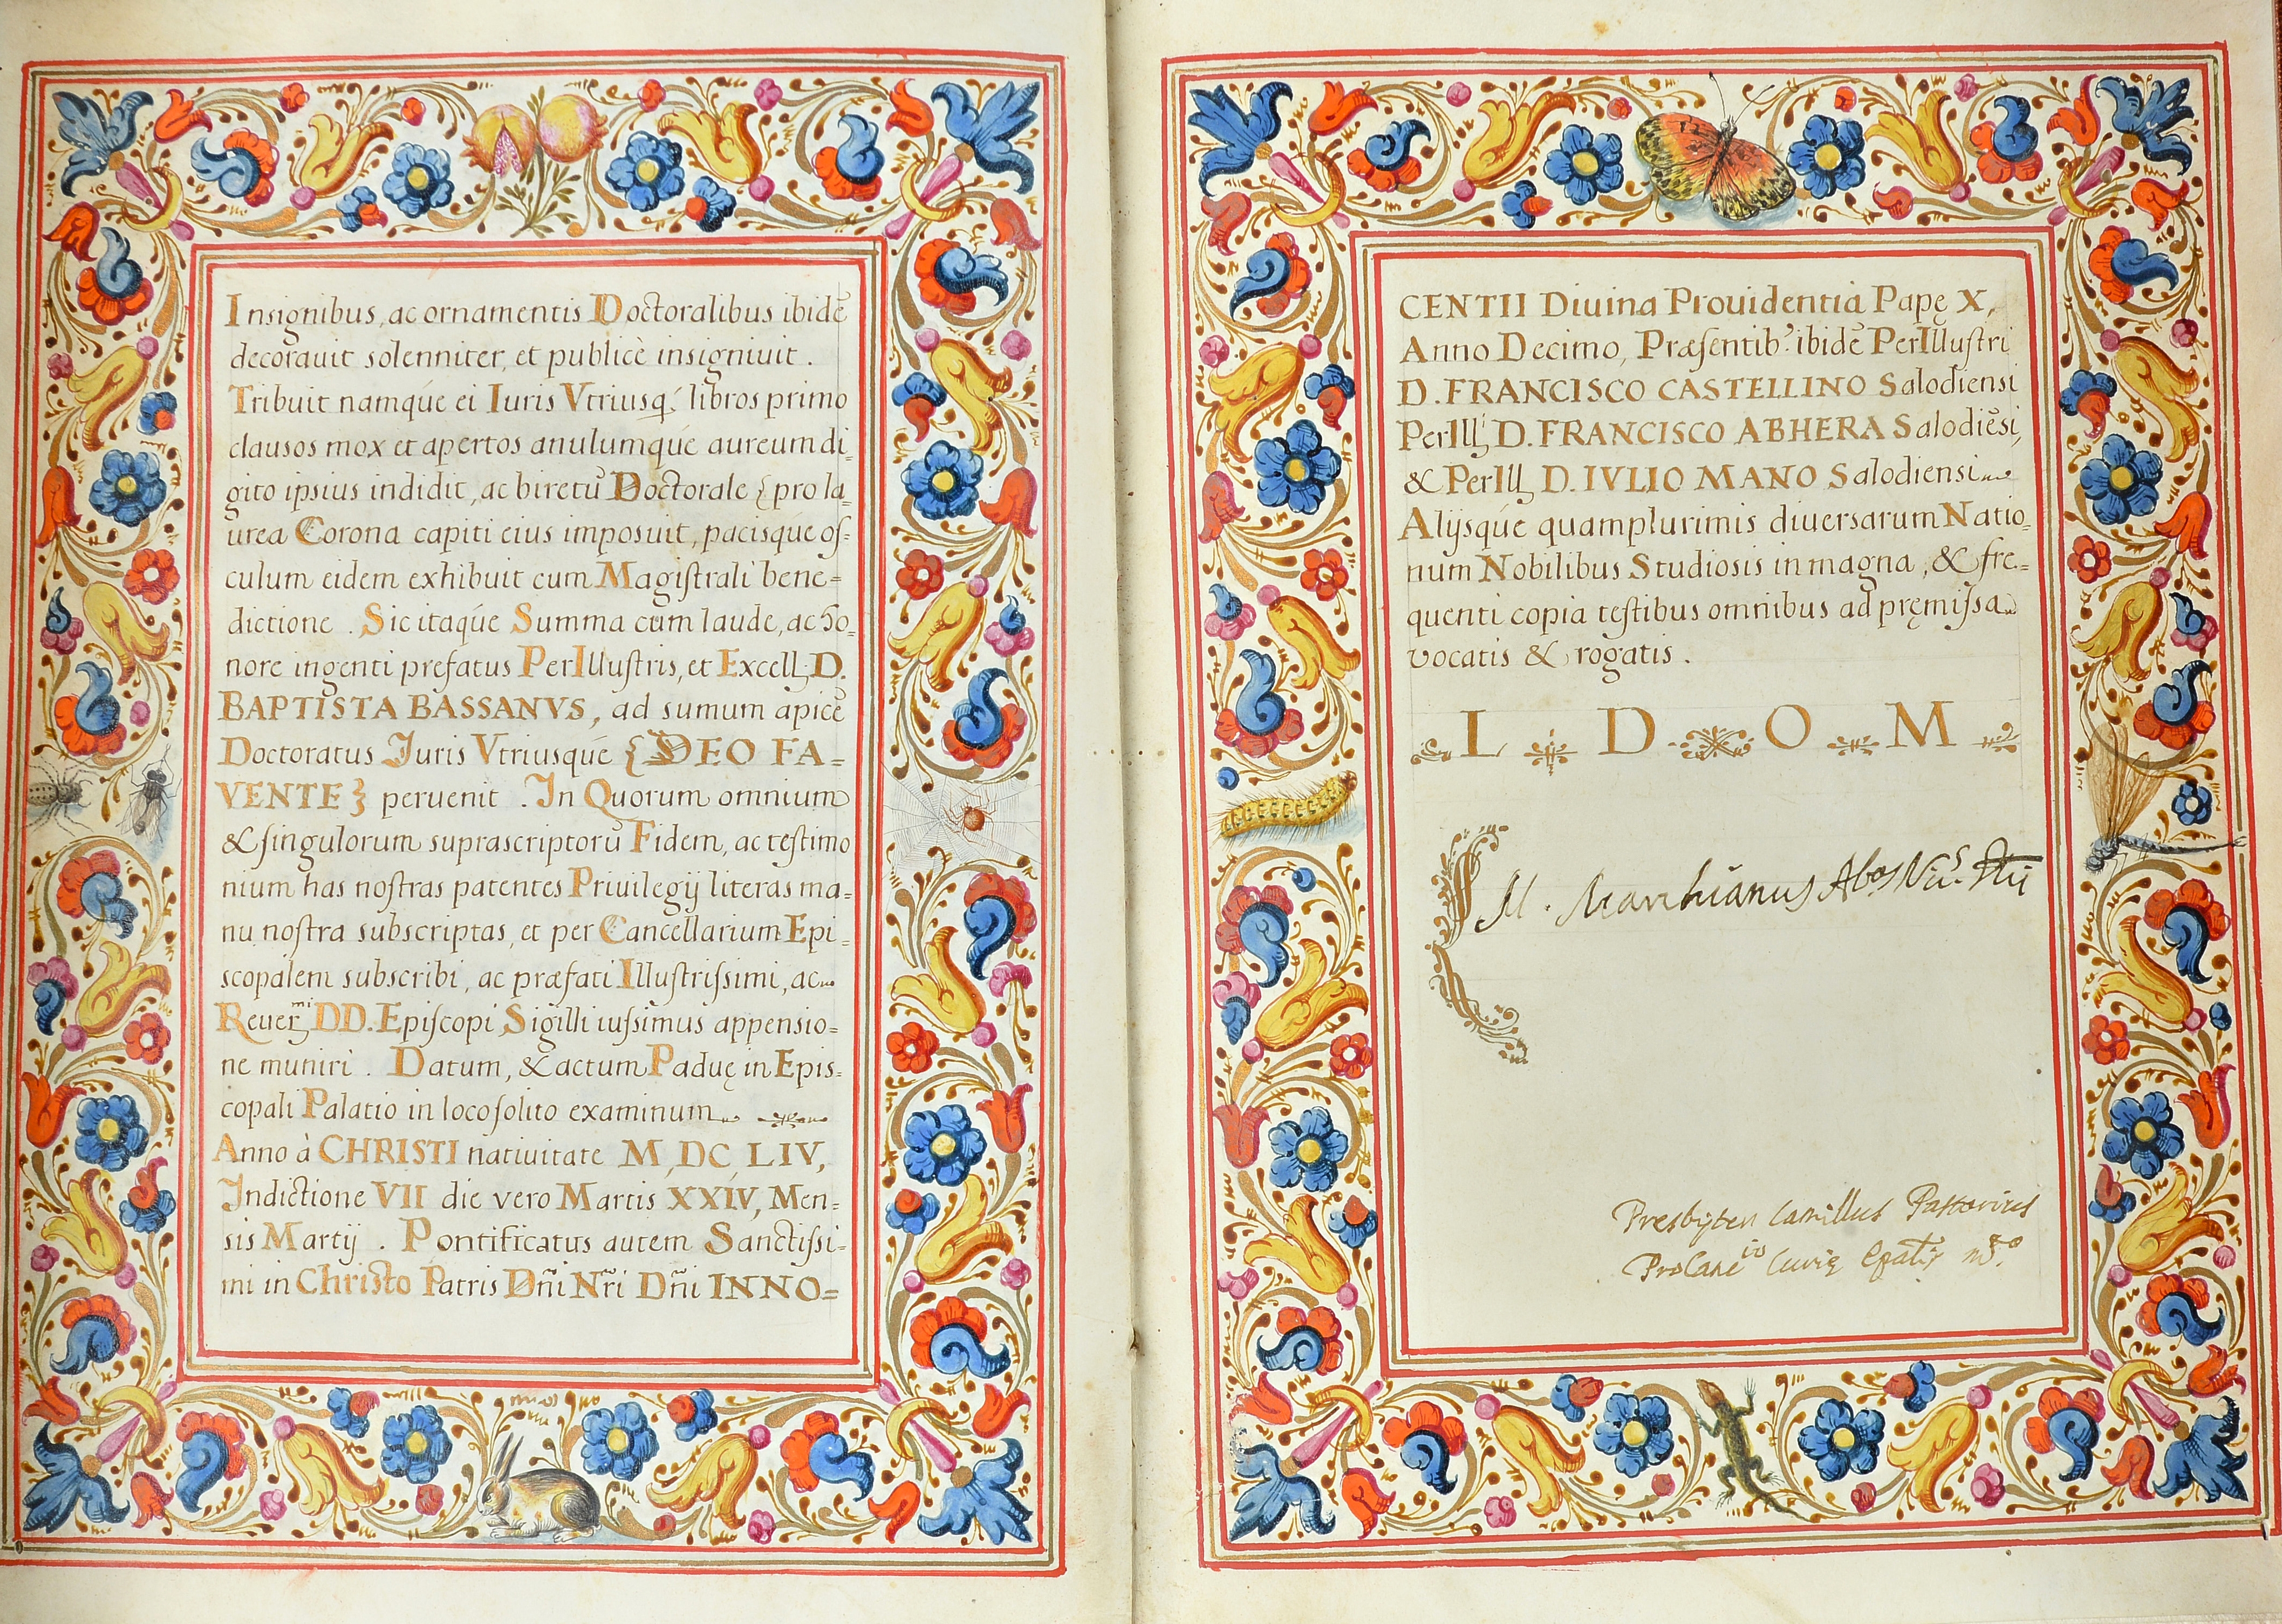 Insignibus, ac ornamentis Doctoralibus ibidē
decorauit solenniter, et publicè insigniuit.
Tribuit namqúe ei Iuris Vtriusq́; libros primo
clausos mox et apertos anulumqúe aureum di-
gito ipsius indidit, ac biretū Doctorale {pro la-
urea Corona capiti eius imposuit, pacisqúe oſ-
culum eidem exhibuit cum Magiſtrali bene=
dictione. Sic itaqúe Summa cum laude, ac ho-
nore ingenti prefatus PerIlluſtris, et Excell. D.
BAPTISTA BASSANVS, ad sumum apicē
Doctoratus Juris Vtriusqúe {DEO FA=
VENTE} peruenit. In Quorum omnium
& ſingulorum suprascriptorū Fidem, ac teſtimo
nium has noſtras patentes Priuilegij literas ma-
nu noſtra subscriptas, et per Cancellarium Epi-
scopalem subscribi, ac præfati Illuſtriſsimi, ac
Reuermi DD. Epiſcopi Sigilli iuſsimus appensio=
ne muniri. Datum, & actum Paduę in Epis=
copali Palatio in loco ſolito examinum
Anno à CHRISTI natiuitate M,DC LIV,
Indictione VII die vero Martis XXIV, Men=
sis Martij. Pontificatus autem Sanctiſsi-
mi in Christo Patris Dñi Nr̃i Dñi INNO=
CENTII Diuina Prouidentia Papę X,
Anno Decimo, Præſentib' ibidē PerIlluſtri
D. FRANCISCO CASTELLINO Salodiensi
PerIll D. FRANCISCO ABHERA Salodiēsi,
& PerIll D. IVLIO MANO Salodiensi
Alijsqúe quamplurimis diuersarum Natio=
num Nobilibus Studiosis in magna, & fre=
quenti copia teſtibus omnibus ad pręmiſsa
vocatis & rogatis.
L D O M
M. Marchianus
Presbyter Camillus